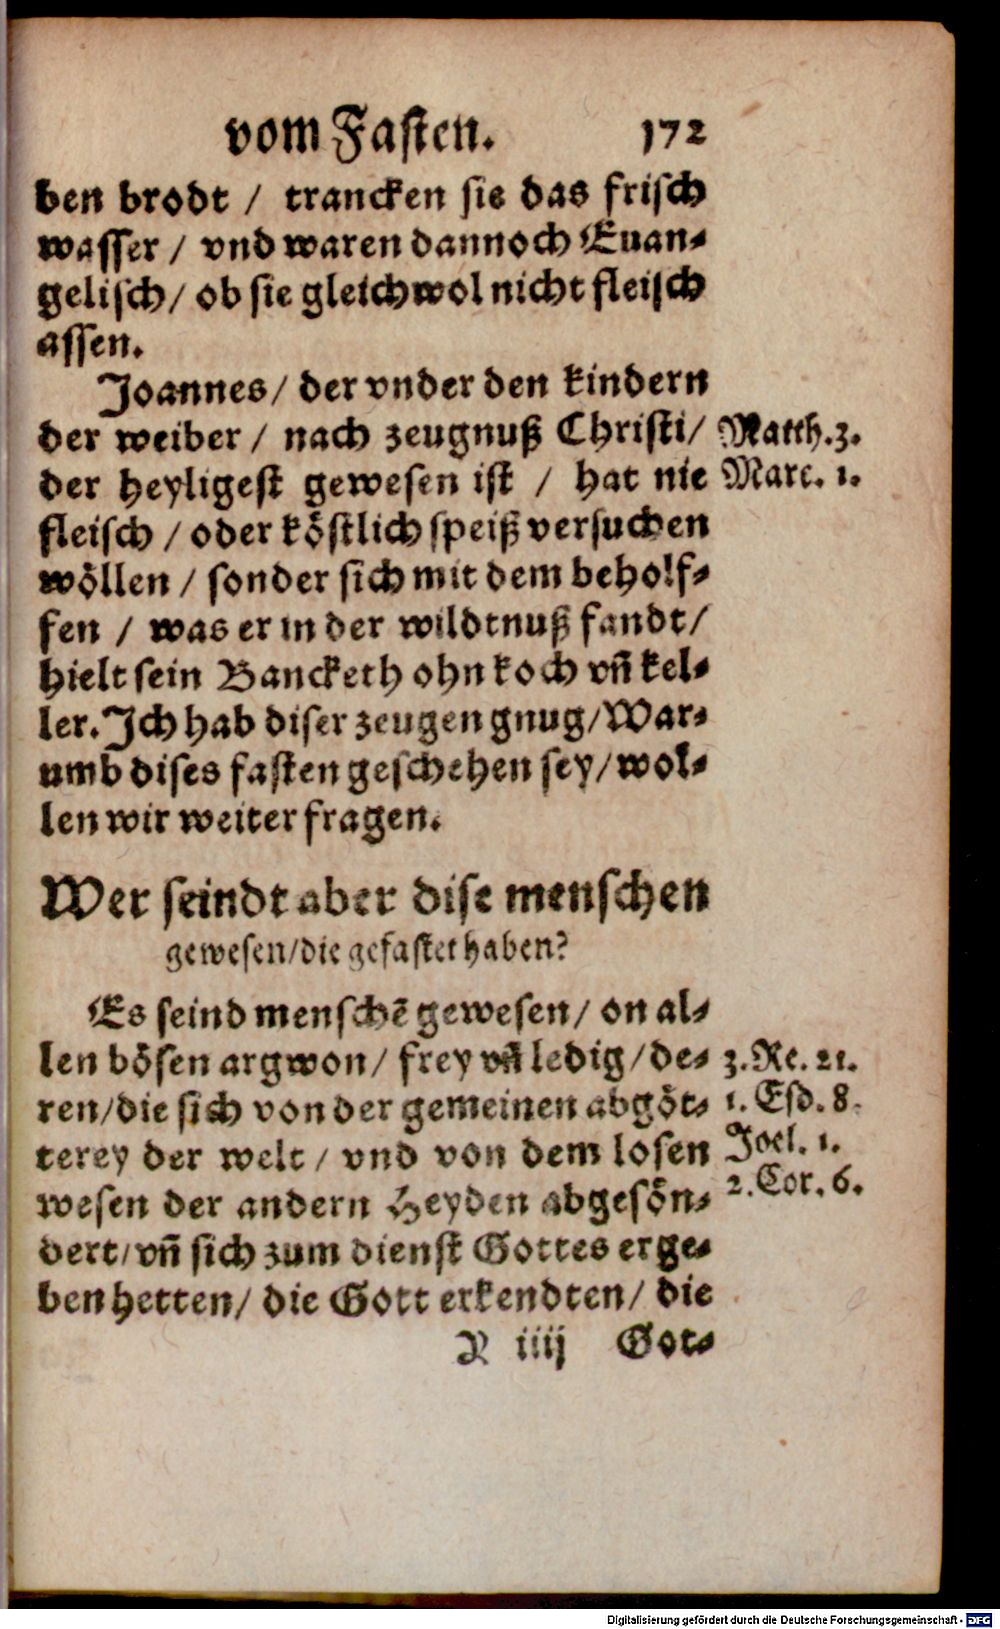 vom Fasten. 172
ben brodt / trancken sie das frisch
wasser / vnd waren dannoch Euan-
gelisch / ob sie gleichwol nicht fleisch
assen.
Joannes / der vnder den kindern
der weiber / nach zeugnuß Christi /
Matth. 3.
der heyligest gewesen ist / hat nie
Marc. 1.
fleisch / oder köstlich speiß versuchen
wöllen / sonder sich mit dem beholf-
fen / was er in der wildtnuß fandt /
hielt sein Bancketh ohn koch vñ kel-
ler. Ich hab diser zeugen gnug / War-
umb dises fasten geschehen sey / wol-
len wir weiter fragen.
Wer seindt aber dise menschen
gewesen / die gefastet haben?
Es seind menschẽ gewesen / on al-
len bösen argwon / frey vñ ledig / de-
3. Re. 21.
ren / die sich von der gemeinen abgöt-
1. Esd. 8.
terey der welt / vnd von dem losen
Joel. 1.
wesen der andern Heyden abgesön-
2. Cor. 6.
dert / vñ sich zum dienst Gottes erge-
ben hetten / die Gott erkendten / die
Y iiij Got-
Digitalisierung gefördert durch die Deutsche Forschungsgemeinschaft - DFG